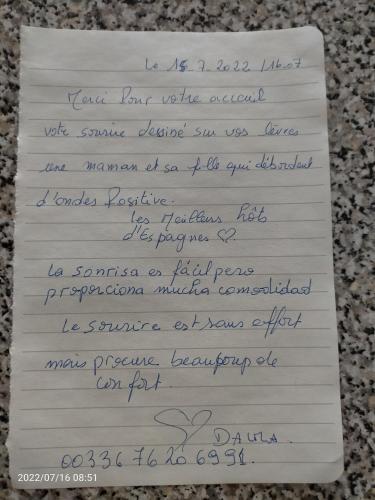 Le 15.7.2022 /16.07
Merci Pour votre acceuil
votre sourire dessiné sur vos lèvres
une maman et sa fille qui débordent
d'ondes Positive.
les Meilleurs hôts
d'Espagnes ♡.
la sonrisa es fácil pero
proporciona mucha comodidad
Le sourire est sans effort
mais procure beaupoup de
confort.
DALILA.
0033676206991.
2022/07/16 08:51